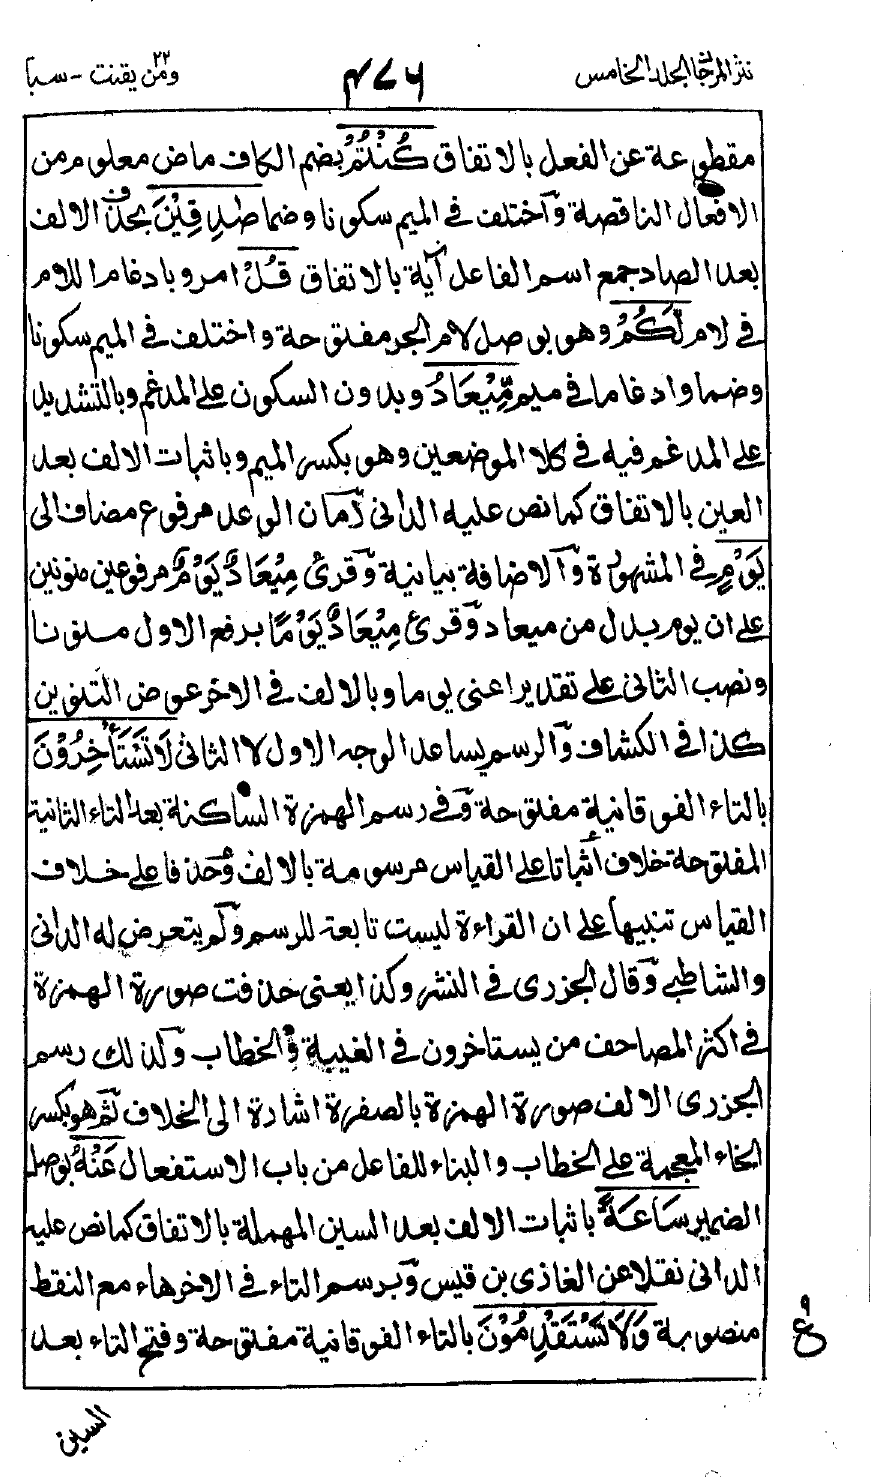 نثر المرجان المجلد الخامس ٤٧٦ ومن يقنت ٢٢ - سبا
مقطوعة عن الفعل بالاتفاق كُنْتُمْ بضم الكاف ماض معلوم من
الافعال الناقصة وآختلف في الميم سكونا وضما صٰدِقِيْنَ بحذف الالف
بعد الصاد جمع اسم الفاعل آية بالاتفاق قُلْ امر وبادغام اللام
في لام لَّكُمْ وهو بوصل لام الجر مفتوحة واختلف في الميم سكونا
وضما وادغاما في ميم مِّيْعَادُ وبدون السكون على المدغم وبالتشديد
على المدغم فيه في كلا الموضعين وهو بكسر الميم وباثبات الالف بعد
العين بالاتفاق كما نص عليه الداني زمان الوعد مرفوع مضاف الى
يَوْمٍ في المشهورة وآلاضافة بيانية وقرئ مِيْعَادٌ يَوْمٌ مرفوعين منونين
على ان يوم بدل من ميعاد وقرئ مِيْعَادٌ يَوْمًا برفع الاول منونا
ونصب الثاني على تقدير اعني يوما وبالالف في الاخر عوض التنوين
كذا في الكشاف وآلرسم يساعد الوجه الاول لا الثاني لَاتَسْتَأْخِرُوْنَ
بالتاء الفوقانية مفتوحة وفي رسم الهمزة الساكنة بعد التاء الثانية
المفتوحة خلاف أثباتا على القياس مرسومة بالالف وحذفا على خلاف
القياس تنبيها على ان القراءة ليست تابعة للرسم ولم يتعرض له الداني
والشاطبي وقال الجزري في النشر وكذا يعني حذفت صورة الهمزة
في اكثر المصاحف من يستاخرون في الغيبة والخطاب وكذلك رسم
الجزري الالف صورة الهمزة بالصفرة اشارة الى الخلاف ثم هو بكسر
الخاء المعجمة على الخطاب والبناء للفاعل من باب الاستفعال عَنْهُ بوصل
الضمير سَاعَةً باثبات الالف بعد السين المهملة بالاتفاق كما نص عليه
الداني نقلا عن الغازي بن قيس وبرسم التاء في الاخر هاء مع النقط
منصوبة وَلَاتَسْتَقْدِمُوْنَ بالتاء الفوقانية مفتوحة وفتح التاء بعد
ع ٩
السين